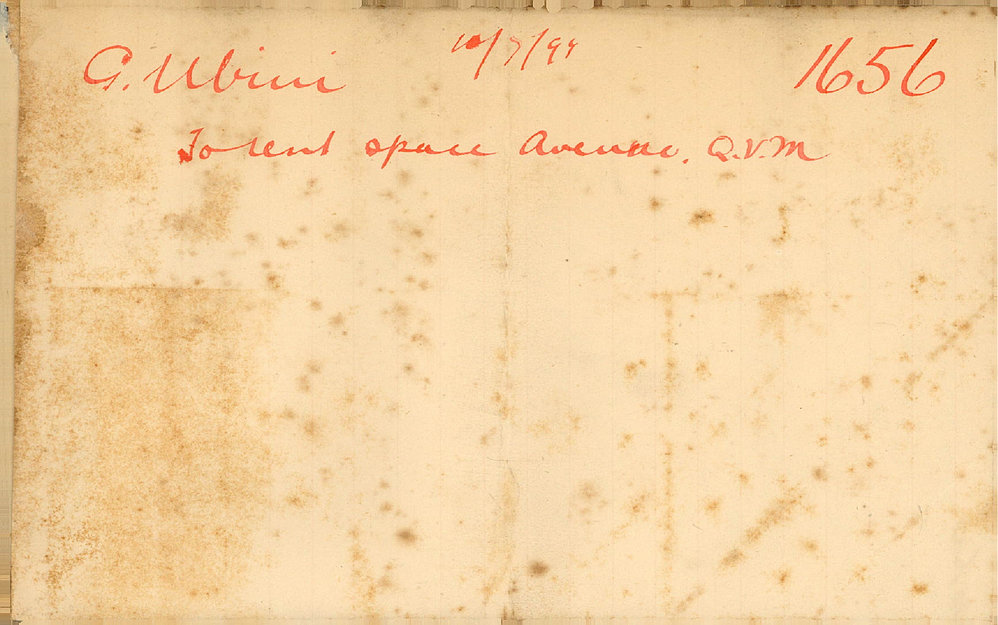 G. Ubini 10/7/99 1656
To rent space Avenue. Q.V.M